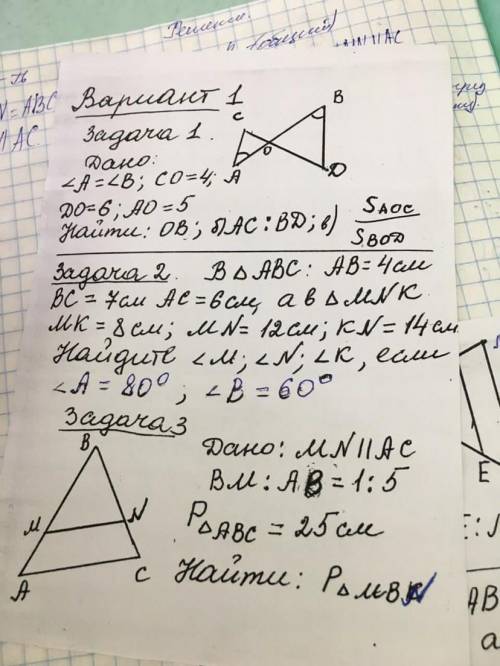 Решении
AC
N = ABC
AC
Вариант 1
Задача 1.
C
B
O
A
D
Дано:
∠A=∠B; CO=4;
DO=6; AO=5
Найти: OB; б) AC : BD; в) S AOC / S BOD
Задача 2. В △ABC: AB=4см
BC = 7см AC=6см, а в △MNK
MK=8см; MN=12см; KN=14см
Найдите ∠M; ∠N; ∠K, если
∠A = 80°; ∠B = 60°
Задача 3
B
M
N
A
C
Дано: MN || AC
BM : AB = 1 : 5
P△ABC = 25см
Найти: P△MBN
E
AB
a